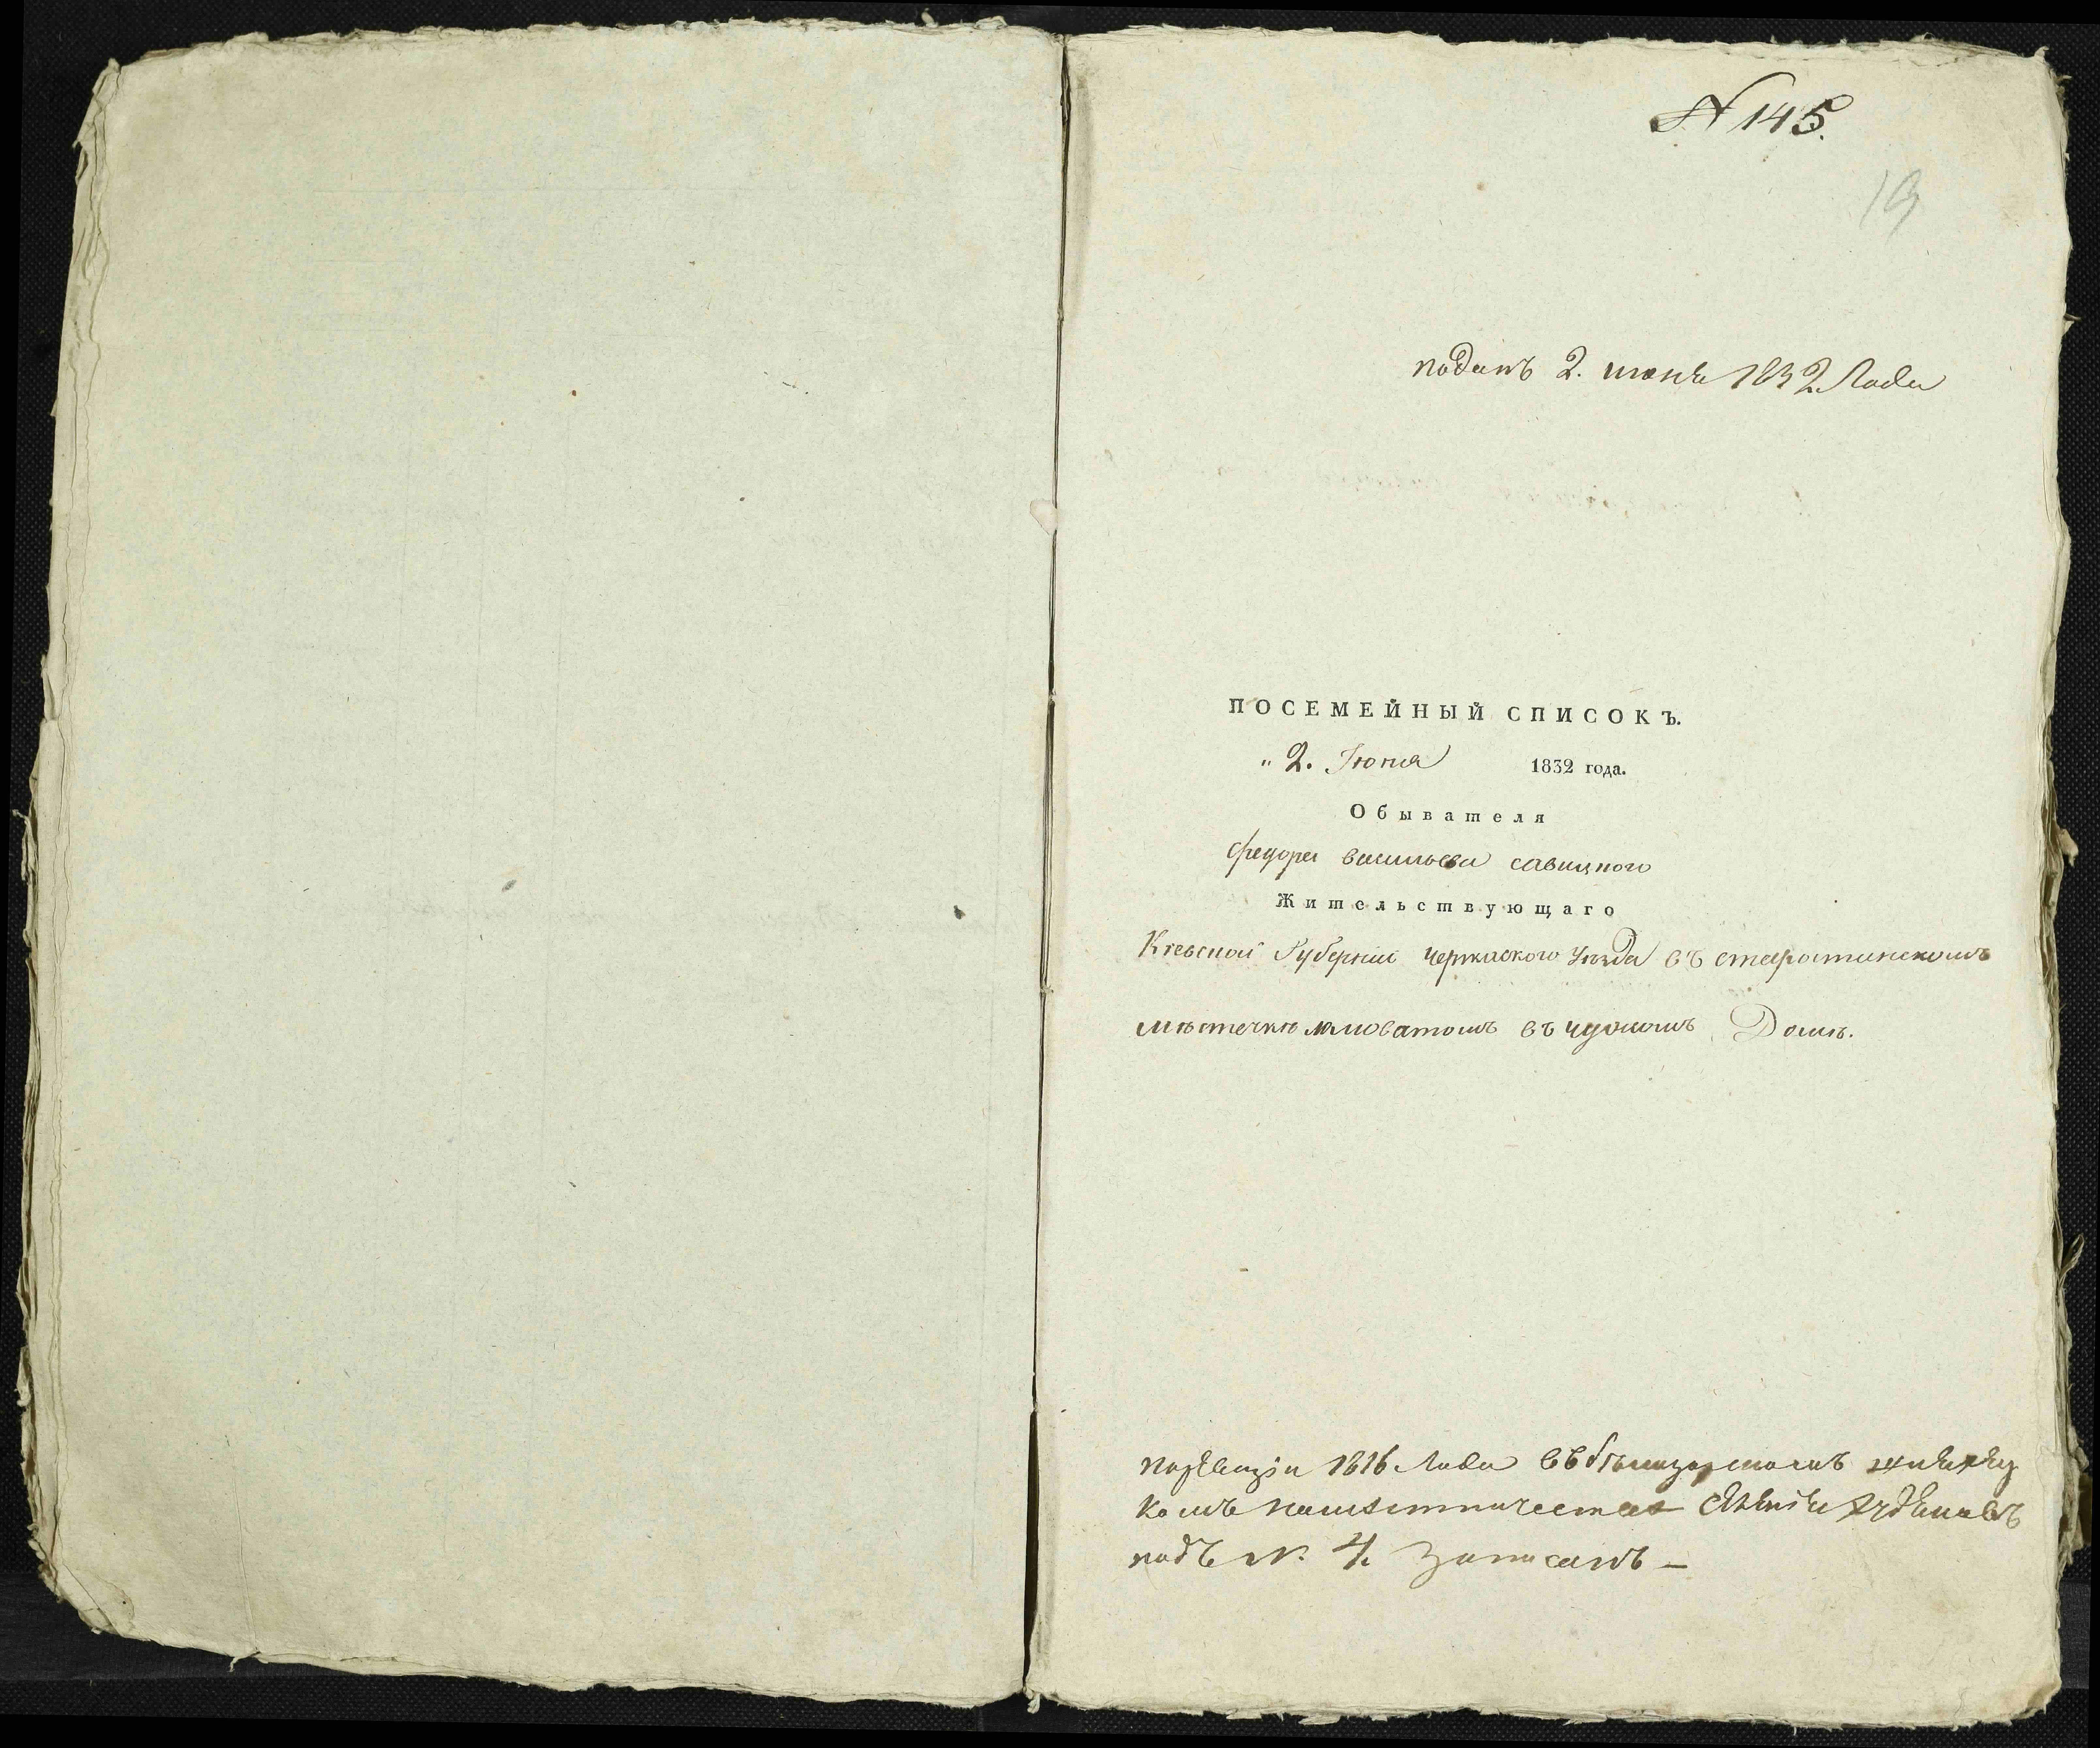 № 145.
19
поданъ 2. июня 1832 года
ПОСЕМЕЙНЫЙ СПИСОКЪ.
„ 2. Июня 1832 года.
Обывателя
Федора васильева савицкого
Жительствующаго
Киевской Губернии черкаского уезда въ старостинскомъ
мѣстечкѣ въ чужомъ Домѣ.
поревизіи 1816 года
комъ
подъ N. 4. записанъ —